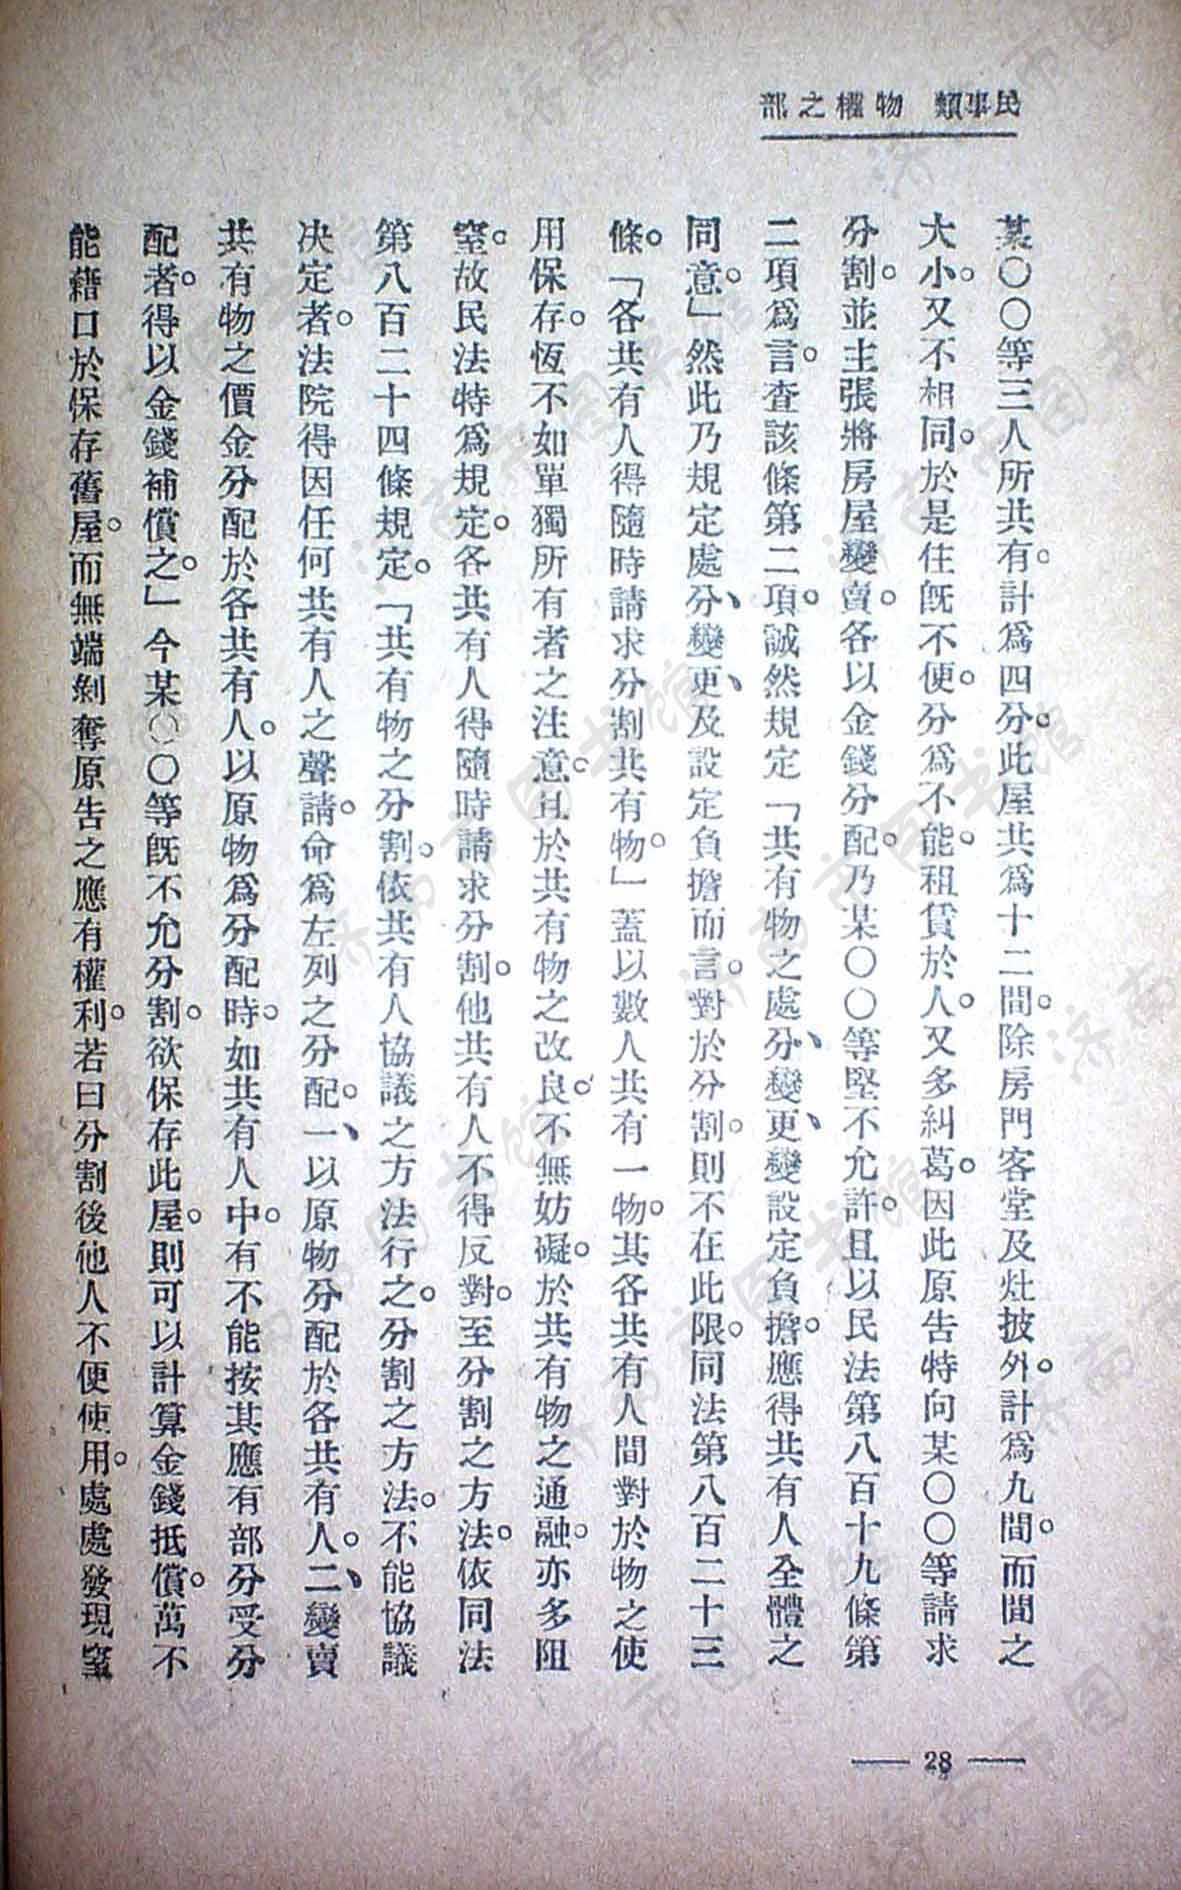 民事類　物權之部
某〇〇等三人所共有。計爲四分。此屋共爲十二間。除房門客堂及灶披外。計爲九間。而間之
大小。又不相同。於是住旣不便。分爲不能。租賃於人。又多糾葛。因此原告特向某〇〇等請求
分割。並主張將房屋變賣。各以金錢分配。乃某〇〇等堅不允許。且以民法第八百十九條第
二項爲言。查該條第二項。誠然規定「共有物之處分、變更、變設定負擔。應得共有人全體之
同意。」然此乃規定處分、變更、及設定負擔而言。對於分割。則不在此限。同法第八百二十三
條。「各共有人得隨時請求分割共有物。」蓋以數人共有一物。其各共有人間對於物之使
用保存。恆不如單獨所有者之注意。且於共有物之改良。不無妨礙。於共有物之通融。亦多阻
窒。故民法特爲規定。各共有人得隨時請求分割。他共有人不得反對。至分割之方法。依同法
第八百二十四條規定。「共有物之分割。依共有人協議之方法行之。分割之方法。不能協議
決定者。法院得因任何共有人之聲請。命爲左列之分配。一、以原物分配於各共有人。二、變賣
共有物之價金分配於各共有人。以原物爲分配時。如共有人中。有不能按其應有部分受分
配者。得以金錢補償之。」今某〇〇等旣不允分割。欲保存此屋。則可以計算金錢抵償。萬不
能藉口於保存舊屋。而無端剝奪原告之應有權利。若曰分割後他人不便使用。處處發現窒
— 28 —